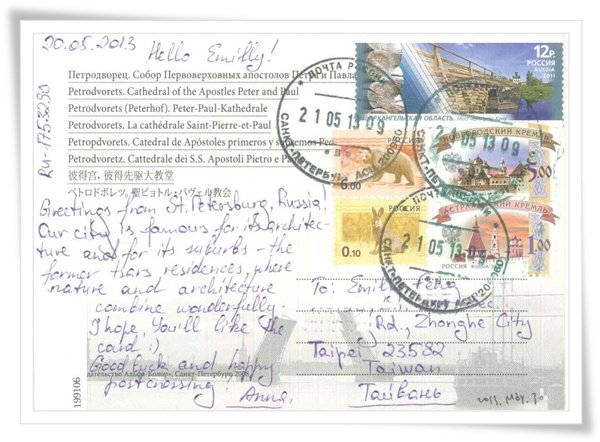 20.05.2013
Hello Emilly!
RU-1753290
Петродворец. Собор Первоверховных апостолов Петра и Павла
Petrodvorets. Cathedral of the Apostles Peter and Paul
Petrodvorets (Peterhof). Peter-Paul-Kathedrale
Petrodvorets. La cathédrale Saint-Pierre-et-Paul
Petropdvorets. Catedral de Apóstoles primeros y supremos Pe
Petrodvoretz. Cattedrale dei S.S. Apostoli Pietro e P
彼得宮, 彼得先駆大教堂
ペトロドボレツ, 聖ピョトル・パヴェル教会
Greetings from St. Petersburg, Russia!
Our city is famous for its architec-
ture and for its suburbs - the
former tsars residences, where
nature and architecture
combine wonderfully.
I hope, You'll like the
card :)
Good luck and happy
postcrossing!
Anna.
12р.
РОССИЯ
RUSSIA
2011
АРХАНГЕЛЬСКАЯ ОБЛАСТЬ.
РОССИЯ
6.00
РОССИЯ
0.10
НОВГОРОДСКИЙ КРЕМЛЬ
5.00
АСТРАХАНСКИЙ КРЕМЛЬ
РОССИЯ
1.00
ПОЧТА РОССИИ
21 05 13 09
САНКТ-ПЕТЕРБУРГ АСЦ
21 05 13 09
ПОЧТА
21 05 13 09
САНКТ-ПЕТЕРБУРГ АСЦ
To:
Rd., Zhonghe City
Taipei 23582
Taiwan
Тайвань
Издательство «Альфа-Колор», Санкт-Петербург 2008
199106
2013. May. 30